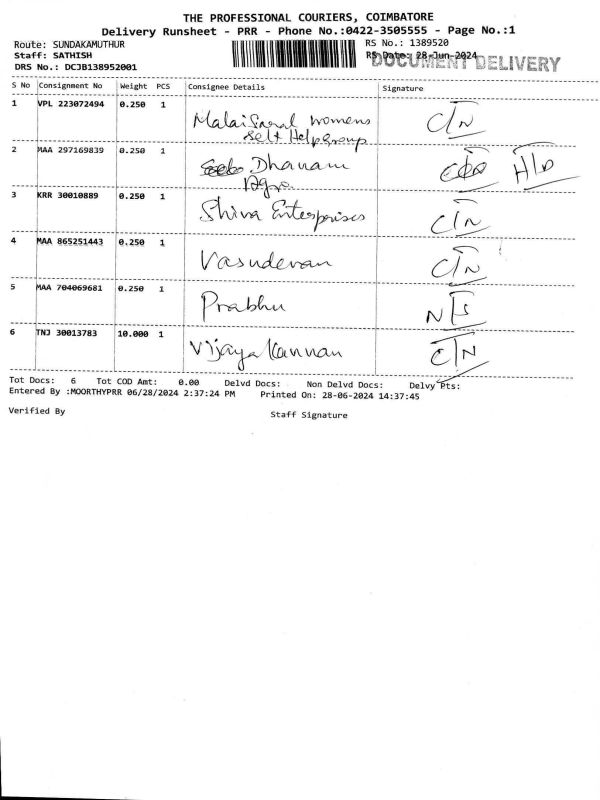 THE PROFESSIONAL COURIERS, COIMBATORE
Delivery Runsheet - PRR - Phone No.:0422-3505555 - Page No.:1
Route: SUNDAKAMUTHUR RS No.: 1389520
Staff: SATHISH RS Date: 28-Jun-2024
DOCUMENT DELIVERY
DRS No.: DCJB138952001
S No Consignment No Weight PCS Consignee Details Signature
1 VPL 223072494 0.250 1 Malai Saral Womens C/N
Self Help group
2 MAA 297169839 0.250 1 Dhanam H/D
Agro
3 KRR 30010889 0.250 1 Shiva Enterprises C/N
4 MAA 865251443 0.250 1 Vasudevan C/N
5 MAA 704069681 0.250 1 Prabhu N/S
6 TNJ 30013783 10.000 1 Vijaya Kannan C/N
Tot Docs: 6 Tot COD Amt: 0.00 Delvd Docs: Non Delvd Docs: Delvy Pts:
Entered By :MOORTHYPRR 06/28/2024 2:37:24 PM Printed On: 28-06-2024 14:37:45
Verified By Staff Signature